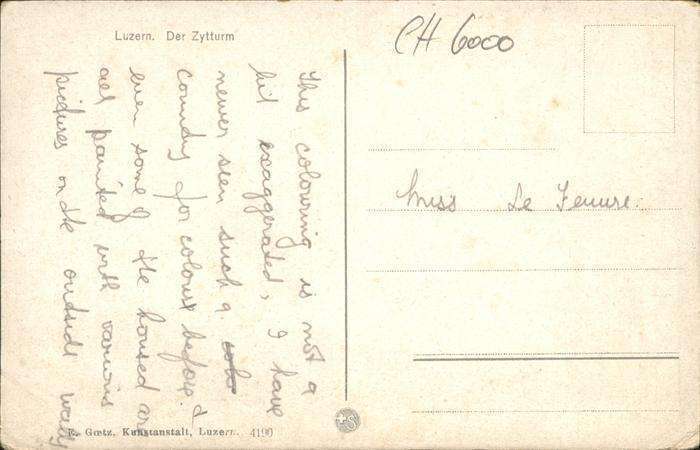 Luzern. Der Zytturm
CH 6000
This colouring is not a
bit exaggerated, I have
never seen such a
country for colour before. &
even some of the housed are
all painted with various
pictures on the outside walls
Miss Le Feuvre.
E. Gœtz, Kunstanstalt, Luzern. 4190